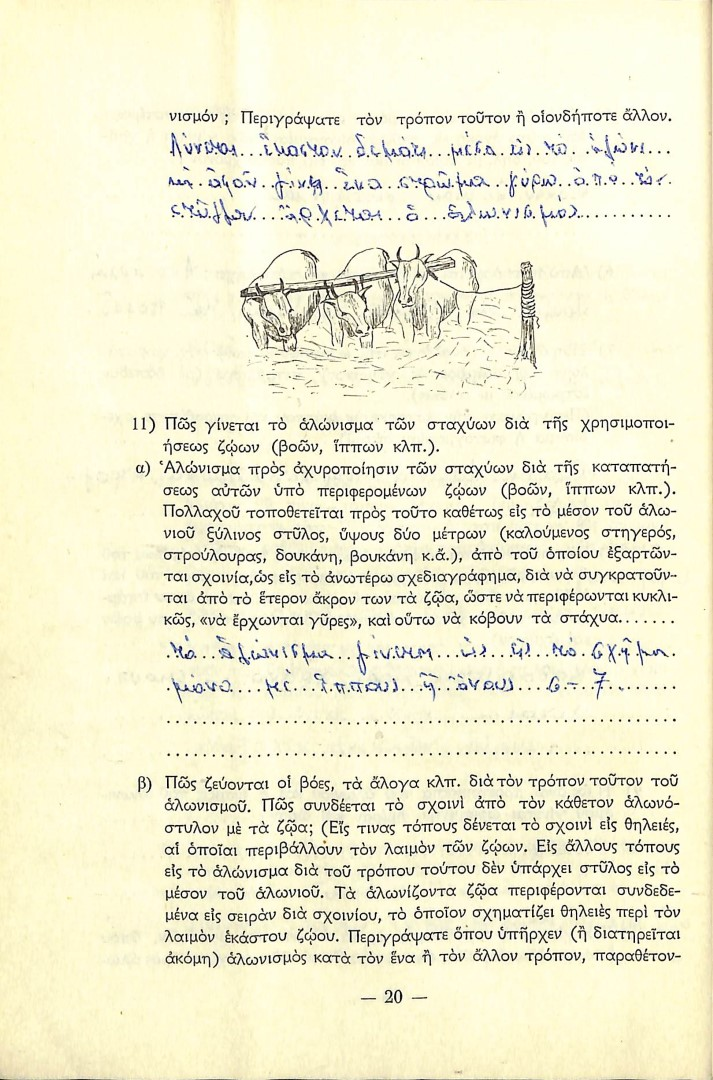 νισμόν ; Περιγράψατε τὸν τρόπον τοῦτον ἢ οἱονδήποτε ἄλλον.
Λύνεται ἕκαστον δεμάτι μέσα εἰς τὸ ἁλώνι
καὶ ἀφοῦ γίνῃ ἕνα στρῶμα γύρω ἀπὸ τὸν
στῦλον ἄρχεται ὁ ἁλωνισμός
11) Πῶς γίνεται τὸ ἁλώνισμα τῶν σταχύων διὰ τῆς χρησιμοποι-
ήσεως ζῴων (βοῶν, ἵππων κλπ.).
α) Ἁλώνισμα πρὸς ἀχυροποίησιν τῶν σταχύων διὰ τῆς καταπατή-
σεως αὐτῶν ὑπὸ περιφερομένων ζῴων (βοῶν, ἵππων κλπ.).
Πολλαχοῦ τοποθετεῖται πρὸς τοῦτο καθέτως εἰς τὸ μέσον τοῦ ἁλω-
νιοῦ ξύλινος στῦλος, ὕψους δύο μέτρων (καλούμενος στηγερός,
στρούλουρας, δουκάνη, βουκάνη κ.ἄ.), ἀπὸ τοῦ ὁποίου ἐξαρτῶν-
ται σχοινία, ὡς εἰς τὸ ἀνωτέρω σχεδιαγράφημα, διὰ νὰ συγκρατοῦν-
ται ἀπὸ τὸ ἕτερον ἄκρον των τὰ ζῷα, ὥστε νὰ περιφέρωνται κυκλι-
κῶς, «νὰ ἔρχωνται γῦρες», καὶ οὕτω νὰ κόβουν τὰ στάχυα.......
τὸ ἁλώνισμα γίνεται ὡς εἰς τὸ σχῆμα
μόνο μὲ ἵππους ἢ ὄνους 6 - 7
β) Πῶς ζεύονται οἱ βόες, τὰ ἄλογα κλπ. διὰ τὸν τρόπον τοῦτον τοῦ
ἁλωνισμοῦ. Πῶς συνδέεται τὸ σχοινὶ ἀπὸ τὸν κάθετον ἁλωνό-
στυλον μὲ τὰ ζῷα; (Εἴς τινας τόπους δένεται τὸ σχοινὶ εἰς θηλειές,
αἱ ὁποῖαι περιβάλλουν τὸν λαιμὸν τῶν ζῴων. Εἰς ἄλλους τόπους
εἰς τὸ ἁλώνισμα διὰ τοῦ τρόπου τούτου δὲν ὑπάρχει στῦλος εἰς τὸ
μέσον τοῦ ἁλωνιοῦ. Τὰ ἁλωνίζοντα ζῷα περιφέρονται συνδεδε-
μένα εἰς σειρὰν διὰ σχοινίου, τὸ ὁποῖον σχηματίζει θηλειὲς περὶ τὸν
λαιμὸν ἑκάστου ζῴου. Περιγράψατε ὅπου ὑπῆρχεν (ἢ διατηρεῖται
ἀκόμη) ἁλωνισμὸς κατὰ τὸν ἕνα ἢ τὸν ἄλλον τρόπον, παραθέτον-
— 20 —